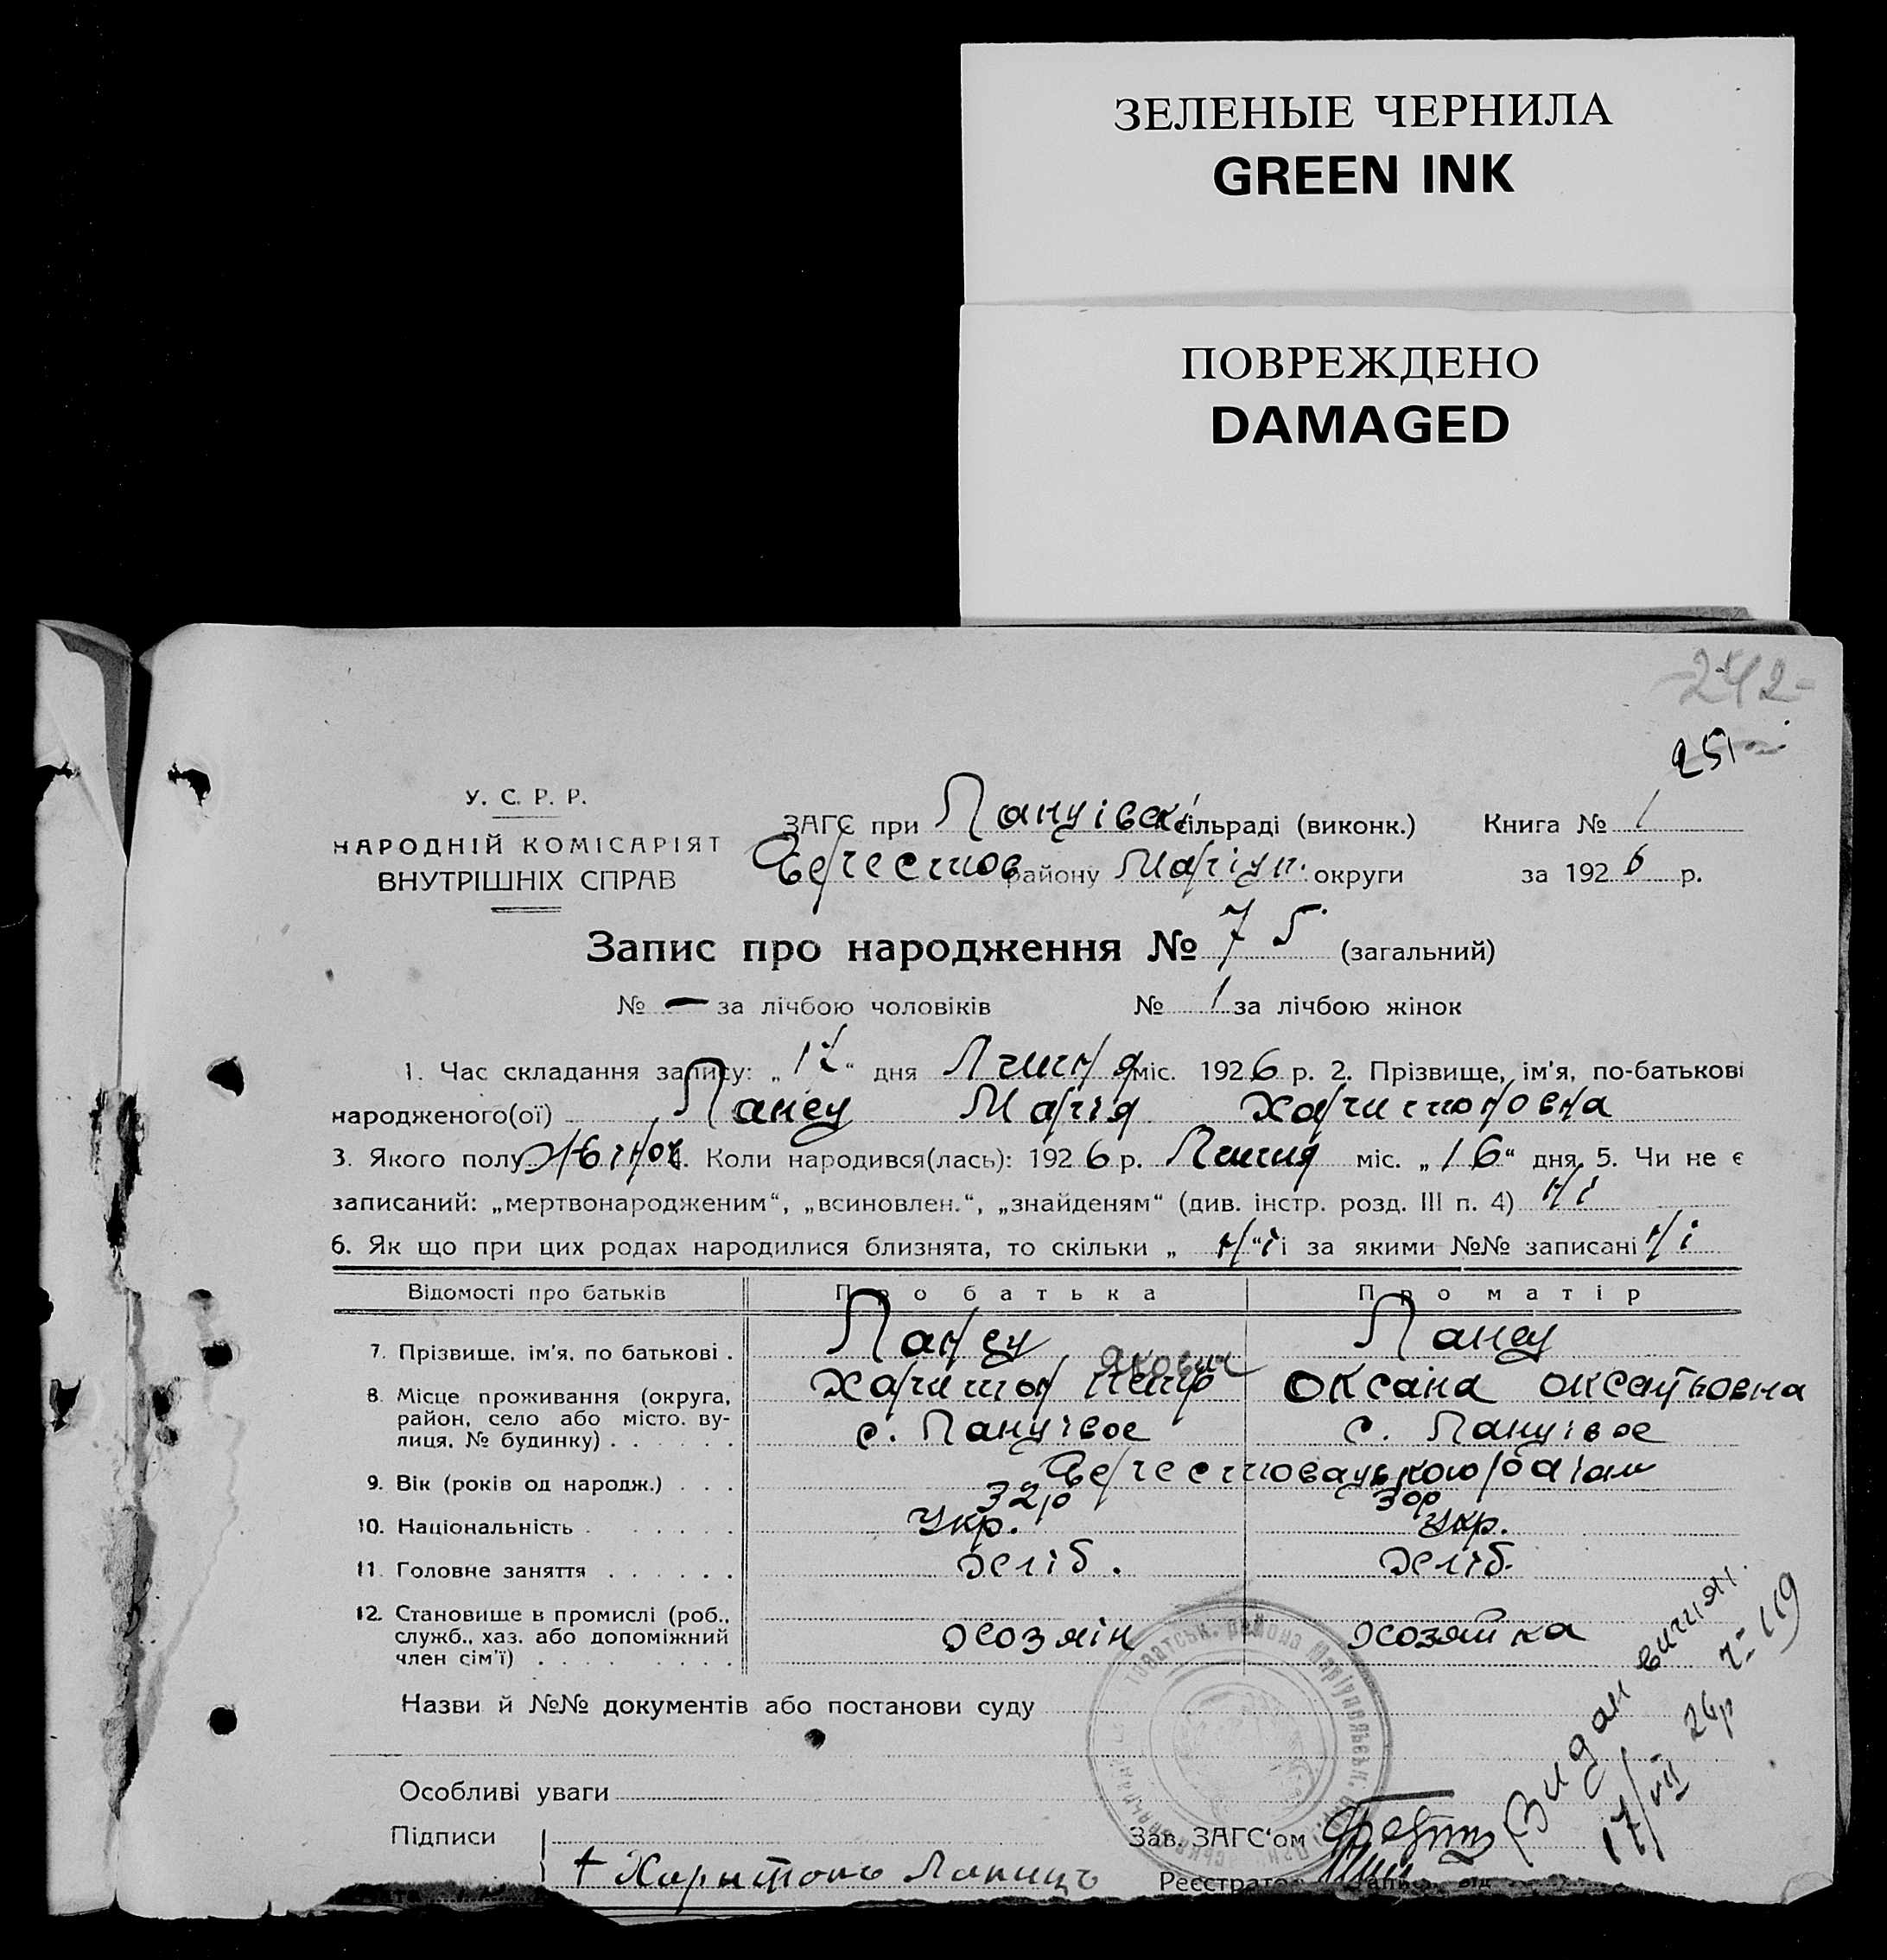 ЗЕЛЕНЫЕ ЧЕРНИЛА
GREEN INK
ПОВРЕЖДЕНО
DAMAGED
242-
251
У. С. Р. Р.
НАРОДНІЙ КОМІСАРІЯТ
ВНУТРІШНІХ СПРАВ
ЗАГС при Ланцівск. сільраді (виконк.) Книга № 1
району Маріуп. округи за 1926 р.
Запис про народження № 75 (загальний)
№ — за лічбою чоловіків № 1 за лічбою жінок
1. Час складання запису: „17“ дня Липня міс. 1926 р. 2. Прізвище, ім’я, по-батькові
народженого(ої) Ланец Марія Харитоновна
3. Якого полу Жіноч. 4. Коли народився(лась): 1926 р. Липня міс. „16“ дня 5. Чи не є
записаний: „мертвонародженим“, „всиновлен.“, „знайденям“ (див. інстр. розд. III п. 4) Ні
6. Як що при цих родах народилися близнята, то скільки „Ні“ і за якими №№ записані Ні
Відомості про батьків Про батька Про матір
7. Прізвище, ім’я, по батькові . Ланец Ланец
Харитон Оксана
8. Місце проживання (округа, район, село або місто, вулиця, № будинку) . с. Ланцівое с. Ланцівое
9. Вік (років од народж.) . . . 32р 30р
10. Національність . Укр. Укр.
11. Головне заняття . Хліб. Хліб.
12. Становище в промислі (роб., служб., хаз. або допоміжний член сім’ї) . Хозяін Хозяйка
Назви й №№ документів або постанови суду
Особливі уваги
Підписи
Зав. ЗАГС‘ом
+ Харитонъ
Реєстратор
Видан
17/VII 26р
119